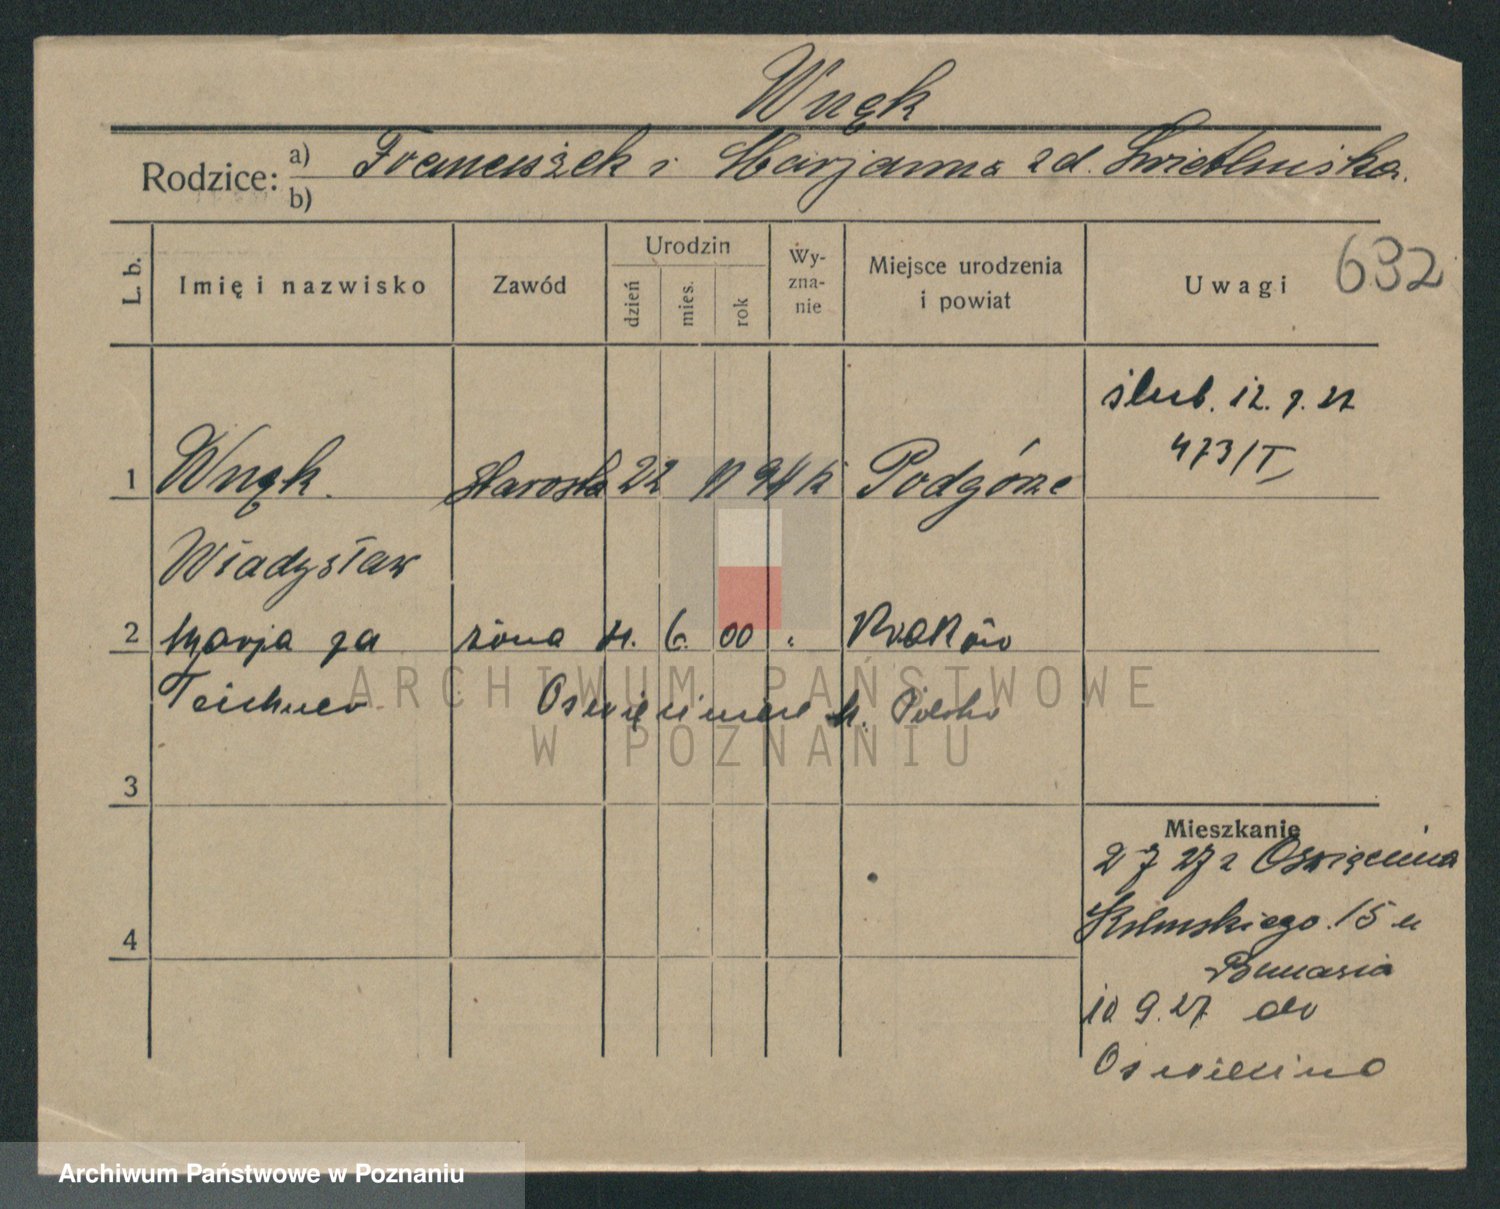 Wnęk
Rodzice: a) Franciszek i Marjanna zd.
b)
L. b.
Imię i nazwisko
Zawód
Urodzin
dzień
mies.
rok
Wy-
zna-
nie
Miejsce urodzenia
i powiat
Uwagi
632
ślub. 12. 7. 27
473/I
1 Wnęk. starosta 22 11 94 k Podgórze
Władysław
2 Marja za żona 11. 6. 00 Kraków
Teichner Oświęcimiu
3
4
Mieszkanie
2 7 27 z Oświęcimia
15 u
10 9. 27 do
Oświęcimia
ARCHIWUM PAŃSTWOWE
W POZNANIU
Archiwum Państwowe w Poznaniu